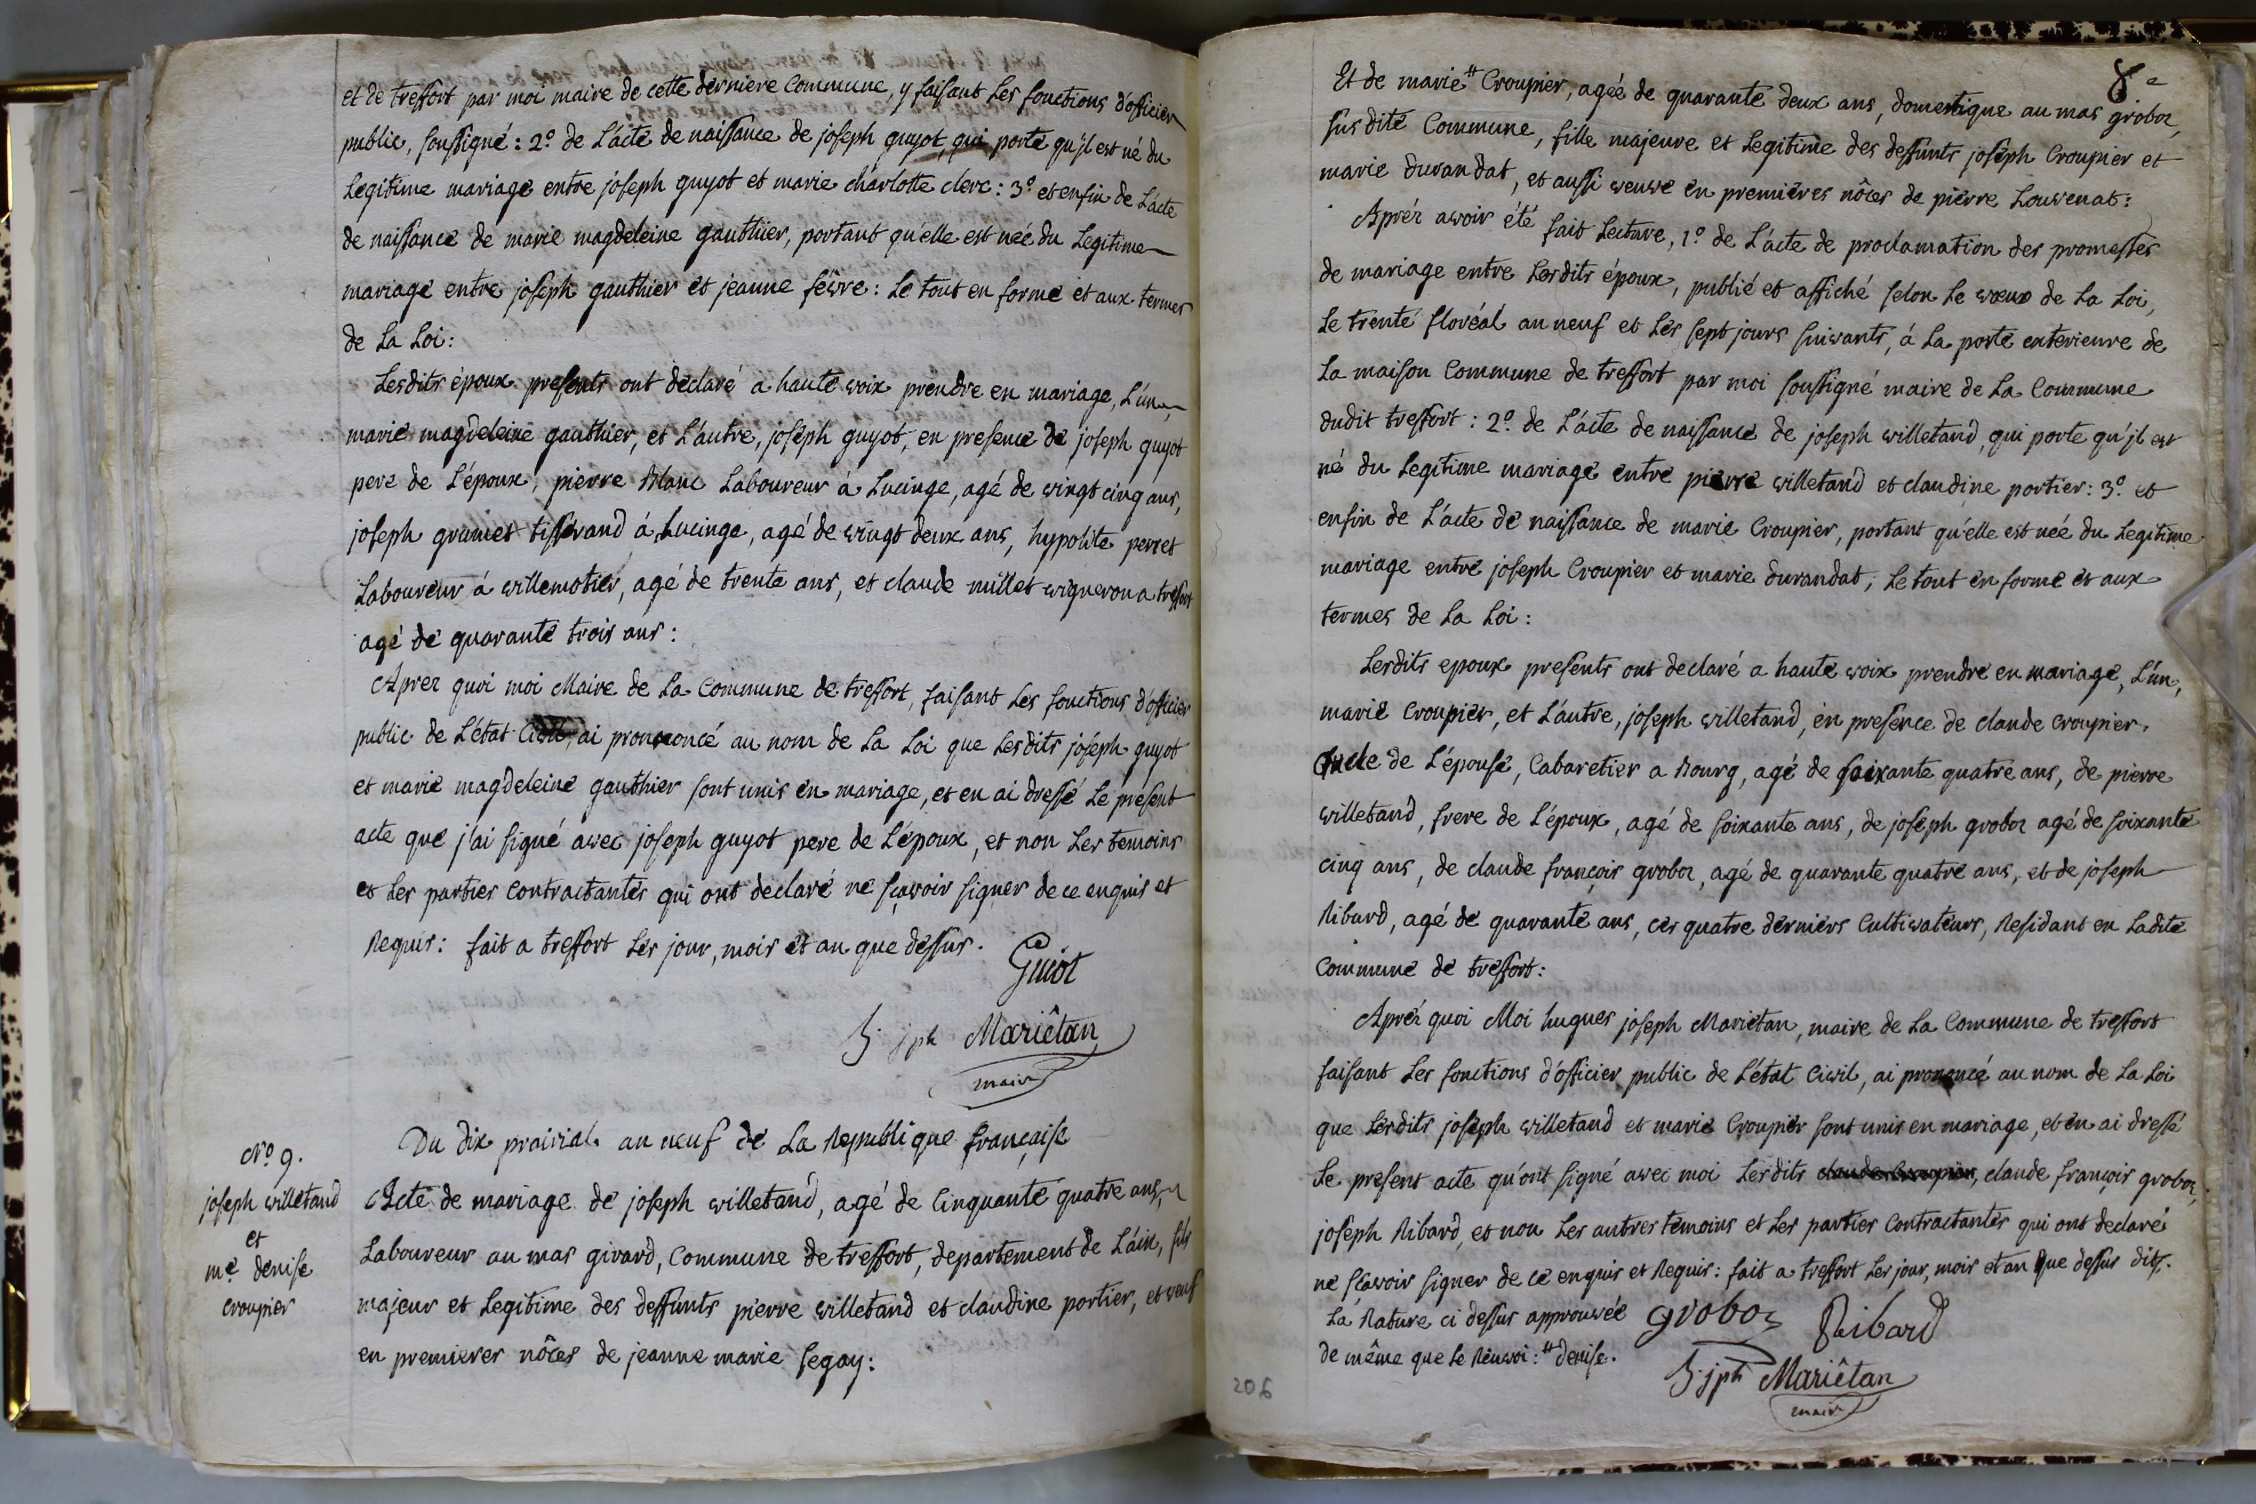 et de treffort par moi maire de cette derniere Commune, y faisant Les fonctions d'officier
public, soussigné : 2.º de L'acte de naissance de joseph guyot, qui porte qu'jl est né du
Legitime mariage entre joseph guyot et marie charlotte clerc : 3.º et enfin de L'acte
de naissance de marie magdeleine gauthier, portant qu'elle est née du Legitime
mariage entre joseph gauthier et jeanne fèvre : Le tout en forme et aux termes
de La Loi :
Lesdits époux presents ont déclaré a haute voix prendre en mariage, L'un,
marie magdeleine gauthier, et L'autre, joseph guyot, en presence de joseph guyot
pere de L'époux, pierre Blanc Laboureur à Lucinge, agé de vingt cinq ans,
joseph tisserand á Lucinge, agé de vingt deux ans, hypolite perret
Laboureur á villemotier, agé de trente ans, et claude millet vigneron a treffort
agé de quarante trois ans :
Aprez quoi moi Maire de La Commune de treffort, faisant Les fonctions d'officier
public de L'état Civil, ai prononcé au nom de La Loi que Lesdits joseph guyot
et marie magdeleine gauthier sont unis en mariage, et en ai dressé Le présent
acte que j'ai signé avec joseph guyot pere de L'époux, et non Les temoins
et Les parties Contractantes qui ont declaré ne sçavoir signer de ce enquis et
Requis : fait a treffort Les jour, mois et an que dessus.
Guiot
h. jph Mariêtan
maire
Nº 9.
joseph villetand
et
m.e denise
croupier
Du dix prairial an neuf de La Republique française
Acte de mariage de joseph villetand, agé de Cinquante quatre ans,
Laboureur au mas girard, Commune de treffort, departement de L'ain, fils
majeur et Legitime des deffunts pierre villetand et claudine portier, et veuf
en premieres nôces de jeanne marie segoy :
8e
Et de marie # Croupier, agée de quarante deux ans, domestique au mas groboz,
susdite Commune, fille majeure et Legitime des deffunts joseph Croupier et
marie durandat, et aussi veuve en premiéres nôces de piérre Louvenat :
Aprér avoir été fait Lecture, 1.º de L'acte de proclamation des promesses
de mariage entre Lesdits époux, publié et affiché selon Le vœux de La Loi,
Le trente floréal an neuf et Les sept jours suivants, á La porte exterieure de
La maison Commune de treffort par moi soussigné maire de La Commune
dudit treffort : 2.º de L'acte de naissance de joseph villetand, qui porte qu'jl est
né du Legitime mariage entre pierre villetand et claudine portier : 3.º et
enfin de L'acte de naissance de marie Croupier, portant qu'elle est née du Legitime
mariage entre joseph Croupier et marie durandat, Le tout en forme et aux
termes de La Loi :
Lesdits epoux presents ont declaré a haute voix prendre en mariage, L'un,
marie Croupier, et L'autre, joseph villetand, en presence de claude croupier,
Oncle de L'épouse, Cabaretier a Bourg, agé de soixante quatre ans, de pierre
villetand, frere de L'époux, agé de soixante ans, de joseph groboz agé de soixante
cinq ans, de claude françois groboz, agé de quarante quatre ans, et de joseph
Ribard, agé de quarante ans, ces quatre derniers Cultivateurs, Residant en Ladite
Commune de treffort :
Aprér quoi Moi hugues joseph Mariétan, maire de La Commune de treffort
faisant Les fonctions d'officier public de L'état Civil, ai prononcé au nom de La Loi
que Lesdits joseph villetand et marie Croupier sont unis en mariage, et en ai dressé
Le present acte qu'ont signé avec moi Lesdits claude Croupier, claude françois groboz,
joseph Ribard, et non Les autres témoins et Les parties Contractantes qui ont declaré
ne sçavoir signer de ce enquis et Requis : fait a treffort Les jour, mois et an que dessus dits.
La Rature ci dessus approuvée
de même que Le Renvoi : # denise.
groboz
Ribard
h. jph Mariêtan
maire
206